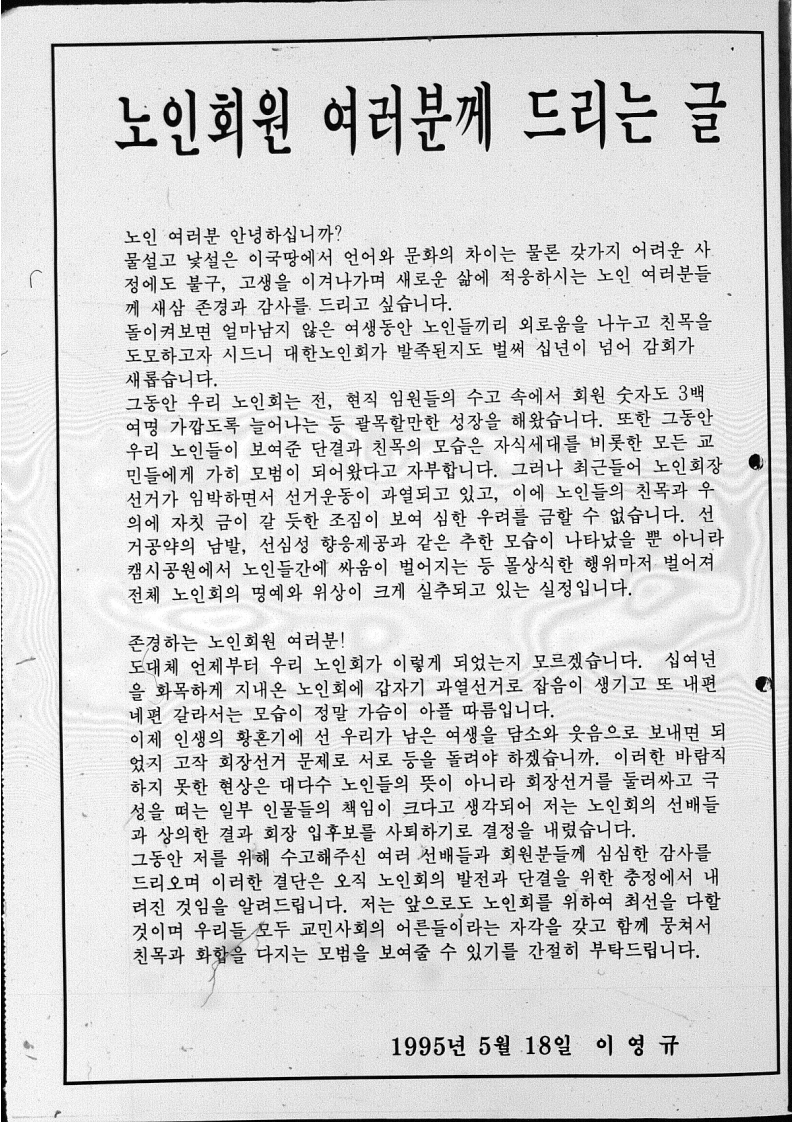 노인회원 여러분께 드리는 글
노인 여러분 안녕하십니까?
물설고 낯설은 이국땅에서 언어와 문화의 차이는 물론 갖가지 어려운 사
정에도 불구, 고생을 이겨나가며 새로운 삶에 적응하시는 노인 여러분들
께 새삼 존경과 감사를 드리고 싶습니다.
돌이켜보면 얼마남지 않은 여생동안 노인들끼리 외로움을 나누고 친목을
도모하고자 시드니 대한노인회가 발족된지도 벌써 십년이 넘어 감회가
새롭습니다.
그동안 우리 노인회는 전, 현직 임원들의 수고 속에서 회원 숫자도 3백
여명 가깝도록 늘어나는 등 괄목할만한 성장을 해왔습니다. 또한 그동안
우리 노인들이 보여준 단결과 친목의 모습은 자식세대를 비롯한 모든 교
민들에게 가히 모범이 되어왔다고 자부합니다. 그러나 최근들어 노인회장
선거가 임박하면서 선거운동이 과열되고 있고, 이에 노인들의 친목과 우
의에 자칫 금이 갈 듯한 조짐이 보여 심한 우려를 금할 수 없습니다. 선
거공약의 남발, 선심성 향응제공과 같은 추한 모습이 나타났을 뿐 아니라
캠시공원에서 노인들간에 싸움이 벌어지는 등 몰상식한 행위마저 벌어져
전체 노인회의 명예와 위상이 크게 실추되고 있는 실정입니다.
존경하는 노인회원 여러분!
도대체 언제부터 우리 노인회가 이렇게 되었는지 모르겠습니다. 십여년
을 화목하게 지내온 노인회에 갑자기 과열선거로 잡음이 생기고 또 내편
네편 갈라서는 모습이 정말 가슴이 아플 따름입니다.
이제 인생의 황혼기에 선 우리가 남은 여생을 담소와 웃음으로 보내면 되
었지 고작 회장선거 문제로 서로 등을 돌려야 하겠습니까. 이러한 바람직
하지 못한 현상은 대다수 노인들의 뜻이 아니라 회장선거를 둘러싸고 극
성을 떠는 일부 인물들의 책임이 크다고 생각되어 저는 노인회의 선배들
과 상의한 결과 회장 입후보를 사퇴하기로 결정을 내렸습니다.
그동안 저를 위해 수고해주신 여러 선배들과 회원분들께 심심한 감사를
드리오며 이러한 결단은 오직 노인회의 발전과 단결을 위한 충정에서 내
려진 것임을 알려드립니다. 저는 앞으로도 노인회를 위하여 최선을 다할
것이며 우리들 모두 교민사회의 어른들이라는 자각을 갖고 함께 뭉쳐서
친목과 화합을 다지는 모범을 보여줄 수 있기를 간절히 부탁드립니다.
1995년 5월 18일 이 영 규